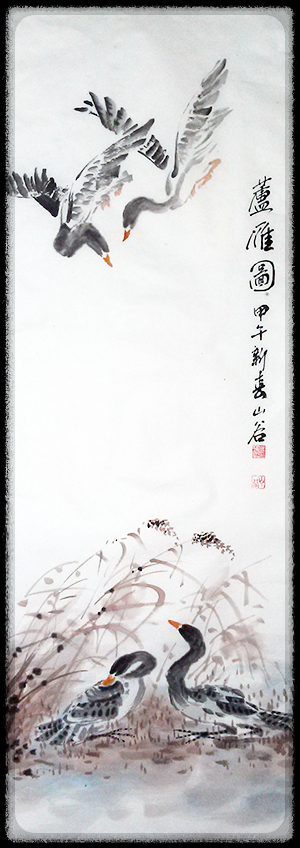 蘆雁圖
甲午新春山谷